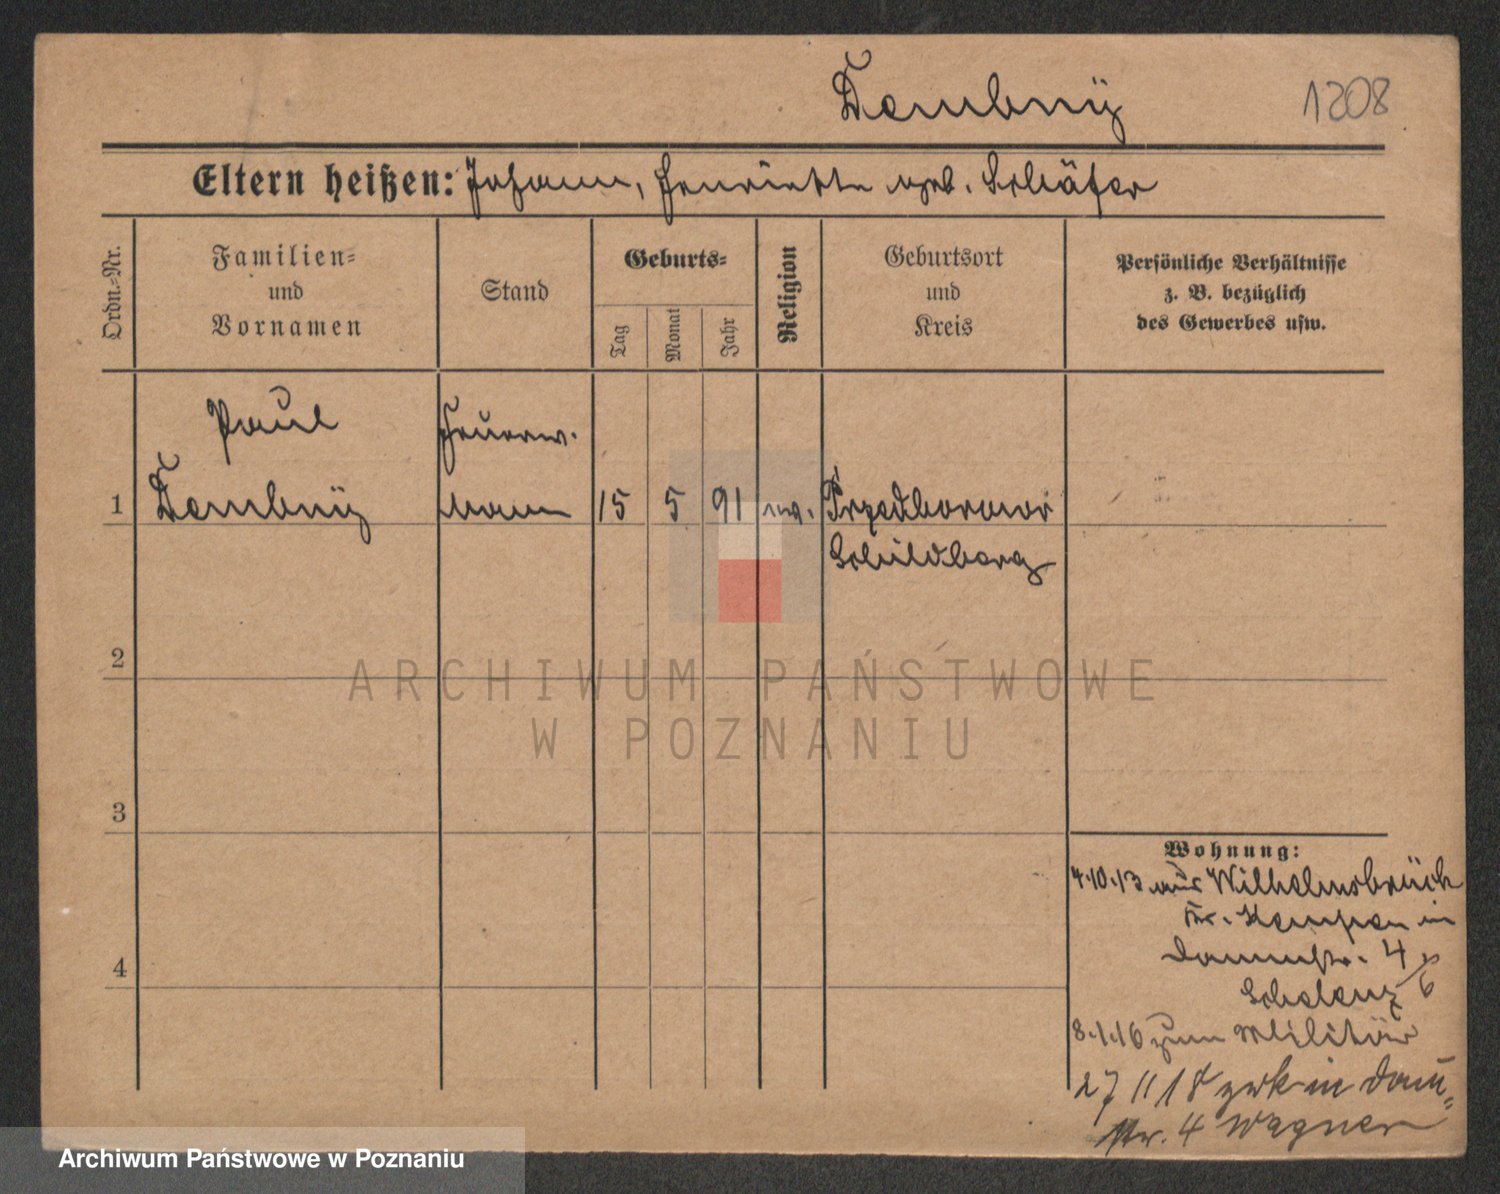 Dembny
1208
Eltern heißen: Johann, Henriette geb. Schäfer
Ordn.-Nr.
Familien-
und
Vornamen
Stand
Geburts-
Tag
Monat
Jahr
Religion
Geburtsort
und
Kreis
Persönliche Verhältnisse
z. B. bezüglich
des Gewerbes usw.
Paul
Feuerw.
1 Dembny mann 15 5 91 ew. Przedborow
Schildberg
2
3
4
Wohnung:
4.10.13 aus Wilhelmsbrück
Kr. Kempen in
Dammstr. 4
8.1.16 zum Militär
27 11 18 zrk in Damm-
str. 4 Wagner
ARCHIWUM PAŃSTWOWE
W POZNANIU
Archiwum Państwowe w Poznaniu